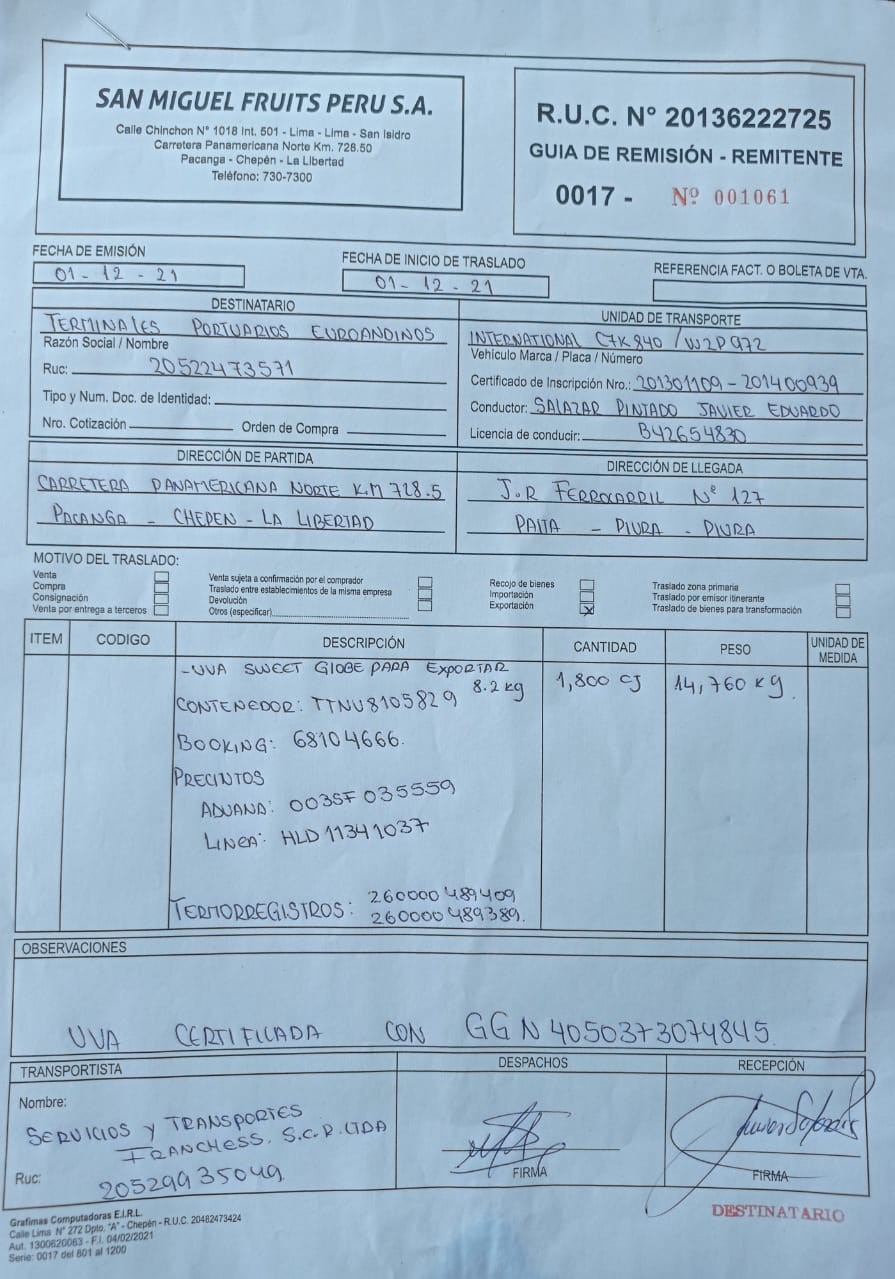 SAN MIGUEL FRUITS PERU S.A.
Calle Chinchon N° 1018 Int. 501 - Lima - Lima - San Isidro
Carretera Panamericana Norte Km. 728.50
Pacanga - Chepén - La Libertad
Teléfono: 730-7300
R.U.C. N° 20136222725
GUIA DE REMISIÓN - REMITENTE
0017 - Nº 001061
FECHA DE EMISIÓN
01 - 12 - 21
FECHA DE INICIO DE TRASLADO
01 - 12 - 21
REFERENCIA FACT. O BOLETA DE VTA.
DESTINATARIO
TERMINALES PORTUARIOS EUROANDINOS
Razón Social / Nombre
Ruc: 20522473571
Tipo y Num. Doc. de Identidad:
Nro. Cotización Orden de Compra
UNIDAD DE TRANSPORTE
INTERNATIONAL C7K840 / W2P972
Vehículo Marca / Placa / Número
Certificado de Inscripción Nro.: 201301109 - 201400939
Conductor: SALAZAR PINTADO JAVIER EDUARDO
Licencia de conducir: B42654830
DIRECCIÓN DE PARTIDA
CARRETERA PANAMERICANA NORTE K.M 728.5
PACANGA - CHEPEN - LA LIBERTAD
DIRECCIÓN DE LLEGADA
J.R FERROCARRIL N° 127
PAITA - PIURA - PIURA
MOTIVO DEL TRASLADO:
Venta
Compra
Consignación
Venta por entrega a terceros
Venta sujeta a confirmación por el comprador
Traslado entre establecimientos de la misma empresa
Devolución
Otros (especificar)
Recojo de bienes
Importación
Exportación X
Traslado zona primaria
Traslado por emisor itinerante
Traslado de bienes para transformación
ITEM CODIGO DESCRIPCIÓN CANTIDAD PESO UNIDAD DE MEDIDA
- UVA SWEET GLOBE PARA EXPORTAR
8.2 kg 1,800 CJ 14,760 kg.
CONTENEDOR: TTNU8105829
BOOKING: 68104666.
PRECINTOS
ADUANA: 003SF 035559
LINEA: HLD 11341037
TERMORREGISTROS: 260000489409
260000489389.
OBSERVACIONES
UVA CERTIFICADA CON GGN 4050373074845.
TRANSPORTISTA
Nombre:
SERVICIOS Y TRANSPORTES
FRANCHESS. S.C.R.LTDA
Ruc: 20529935049
DESPACHOS
FIRMA
RECEPCIÓN
FIRMA
DESTINATARIO
Grafimas Computadoras E.I.R.L.
Calle Lima N° 272 Dpto. "A" - Chepén - R.U.C. 20482473424
Aut. 1300620063 - F.I. 04/02/2021
Serie: 0017 del 801 al 1200